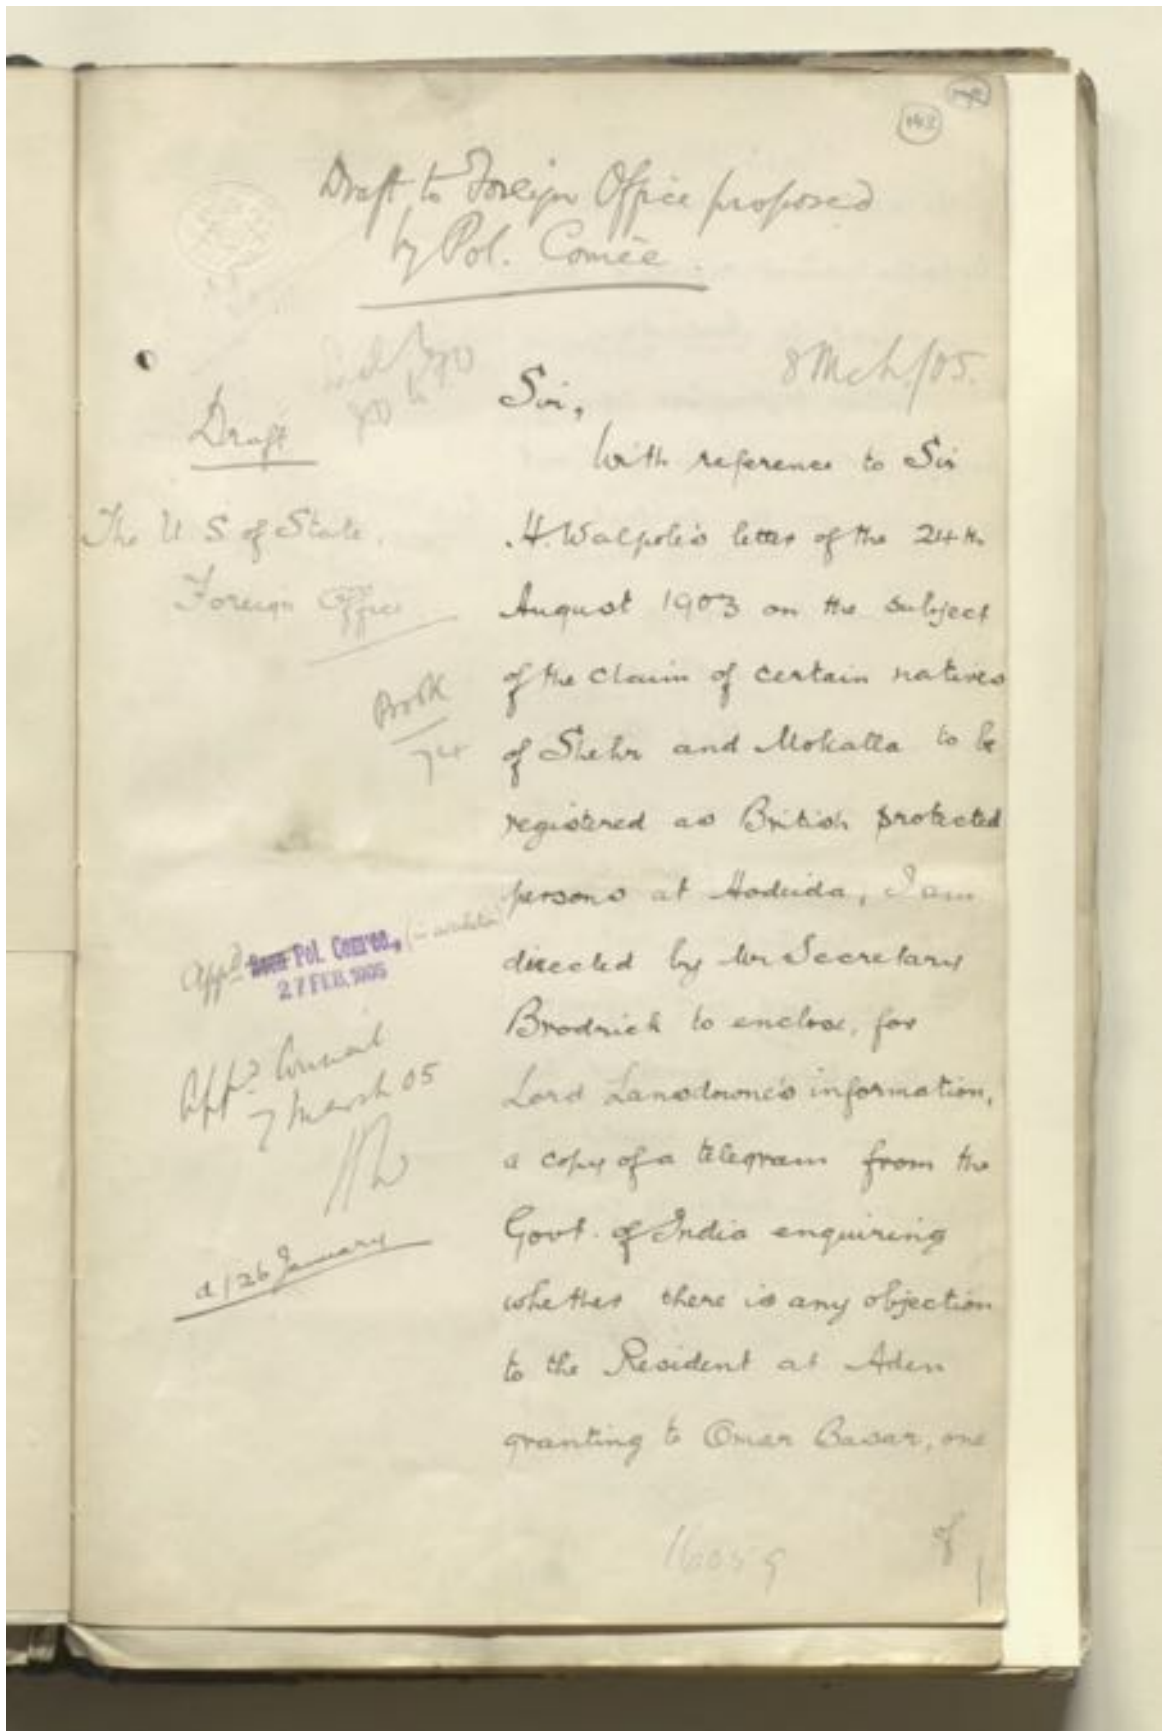 143
Draft to Foreign Office proposed
by Pol. Comee.
8 Mch/05.
Draft
The U S of State,
Foreign Office
Book
74
Appd Seen Pol. Comee.,
27 FEB. 1905
Appd Council
7 March 05
d/26 January
Sir,
With reference to Sir
H. Walpole's letter of the 24th
August 1903 on the subject
of the claim of certain natives
of Shehr and Mokalla to be
registered as British protected
persons at Hodeida, I am
directed by Mr Secretary
Brodrick to enclose, for
Lord Lansdowne's information,
a copy of a telegram from the
Govt. of India enquiring
whether there is any objection
to the Resident at Aden
granting to Omar Basar, one
of